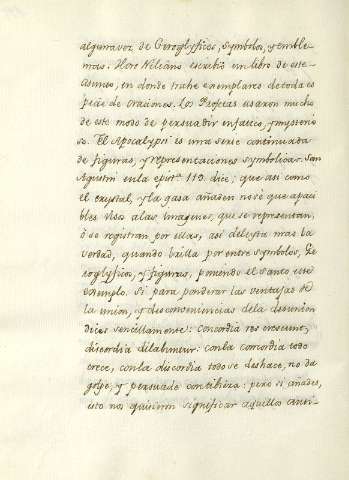 alguna vez de Geroglyficos, Symbolos, y emble-
mas. escribió un libro de este
Asunto, en donde trahe exemplares de toda es
pecie de oraciones. Los Profetas usaron mucho
de este modo de persuadir enfatico, y mysterio
so. El Apocalypsi es una serie continuada
de figuras, y representaciones symbolicas. San
Agustin en la epist.ª 119. dice; que asi como
el crystal, y la gasa añaden no sé que apaci
bles visos a las imagenes, que se representan,
ó se registran por ellas, asi deleyta mas la
verdad, quando brilla por entre symbolos, Ge
roglyficos, y figuras, poniendo el Santo este
exemplo. Si para ponderar las ventajas de
la union, y desconveniencias de la desunion
dices sencillamente: concordia res crescunt,
discordia dilabuntur: con la concordia todo
crece, con la discordia todo se deshace, no da
golpe, y persuade con tibieza: pero si añades,
esto nos quisieron significar aquellos anti-